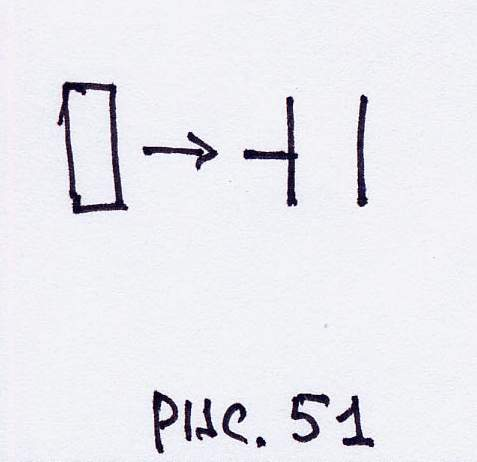 рис. 51